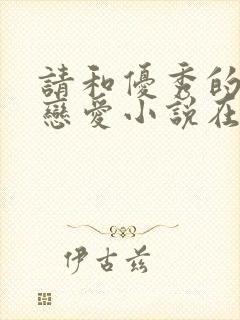 請和優秀的
戀愛小說在
伊古茲